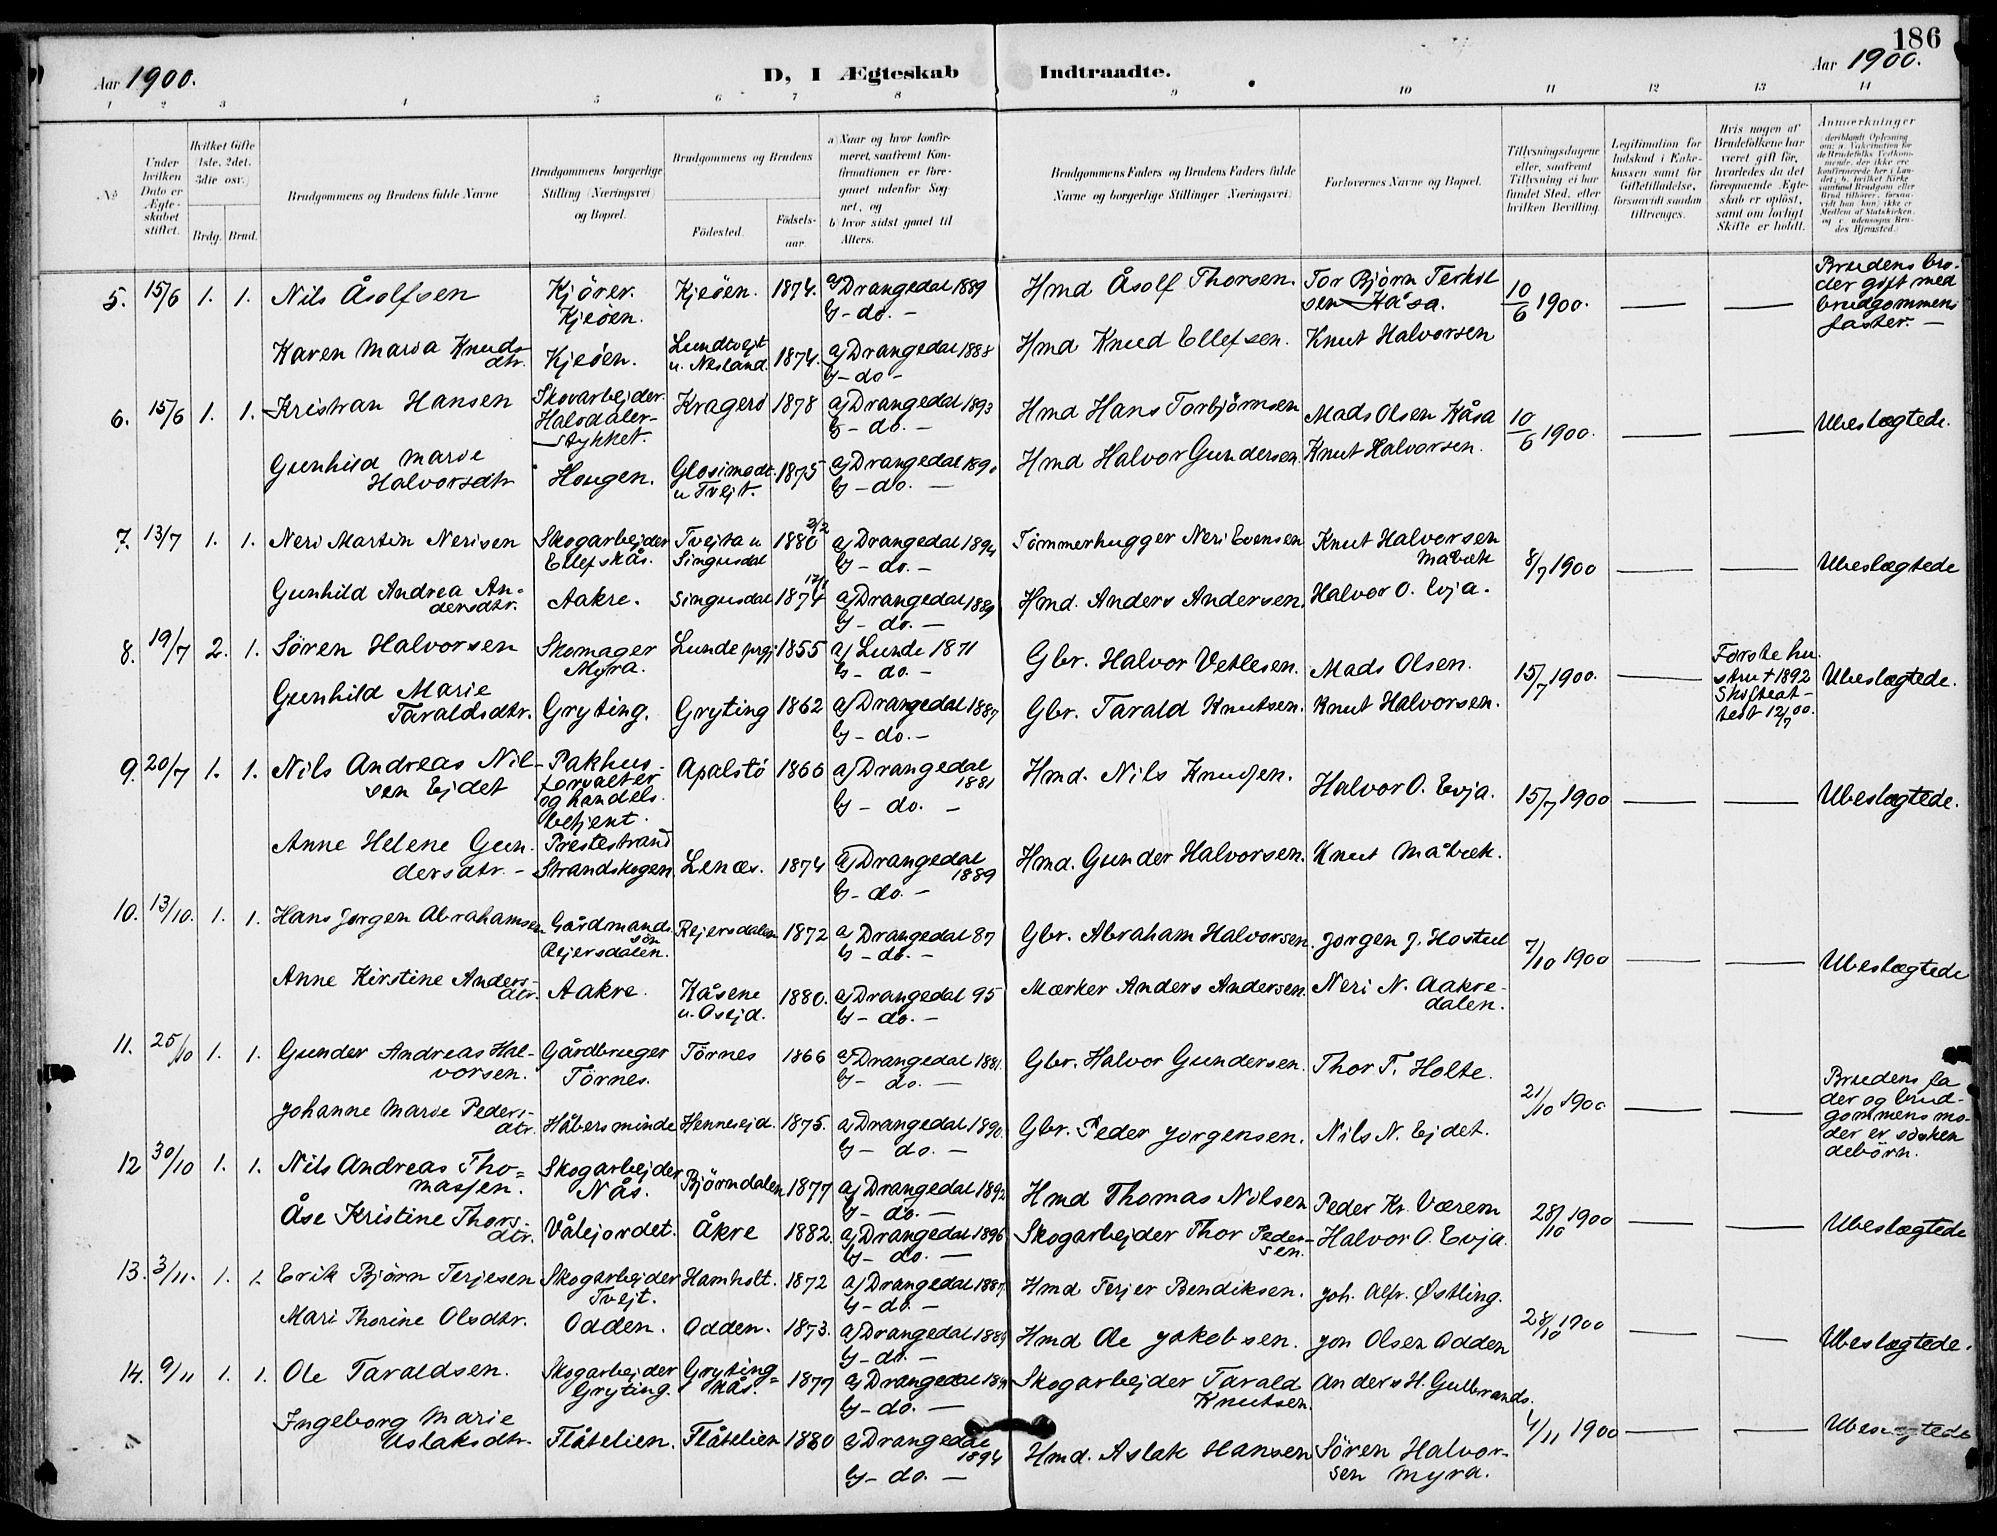 186
Aar 1900.
D, I Ægteskab Indtraadte.
Aar 1900.
1 2 3 4 5 6 7 8 9 10 11 12 13 14
No
Under hvilken Dato er Ægteskabet stiftet.
Hvilket Gifte (1ste, 2det, 3die osv.)
Brdg. Brud.
Brudgommens og Brudens fulde Navne
Brudgommens borgerlige Stilling (Næringsvei) og Bopæl.
Brudgommens og Brudens
Fødested.
Fødselsaar.
a) Naar og hvor konfirmeret, saafremt Konfirmationen er foregaaet udenfor Sognet, og
b) hvor sidst gaaet til Alters.
Brudgommens Faders og Brudens Faders fulde Navne og borgerlige Stillinger (Næringsvei)
Forlovernes Navne og Bopæl.
Tillysningsdagene eller, saafremt Tillysning ei har fundet Sted, efter hvilken Bevilling
Legitimation for Indskud i Enkekassen samt for Giftetilladelse, forsaavidt saadan tiltrænges.
Hvis nogen af Brudefolkene har været gift før, hvorledes da det foregaaende Ægteskab er opløst, samt om lovligt Skifte er holdt.
Anmærkninger (deriblandt Oplysning om: a. Vakcination for de Brudefolks Vedkommende, der ikke ere konfirmerede her i Landet; b. hvilket Kirkesamfund Brudgom eller Brud tilhører, forsaavidt han (hun) ikke er Medlem af Statskirken, og c. udensogns Brudes Hjemsted.)
5. 15/6 1. 1. Nils Åsolfsen Kjører. Kjeöen. Kjeöen. 1874. a) Drangedal 1889 b) - do. - Hmd Åsolf Thorsen. Tor Bjørn Terkelsen Kåsa. 10/6 1900. — — Brudens broder gift med brudgommens faster. —
Karen Maria Knudsdtr. Kjeöen. Lundtvejt u. Nesland. 1874. a) Drangedal 1888 b) - do - Hmd Knud Ellefsen. Knut Halvorsen
6. 15/6 1. 1. Kristian Hansen Skovarbejder. Halsdalerstykket. Kragerö 1878 a) Drangedal 1893 b) - do. - Hmd Hans Torbjørnsen Mads Olsen Kåsa 10/6 1900. — — Ubeslægtede.
Gunhild Marie Halvorsdtr Hougen. Glosimodt. u Tvejt. 1875 a) Drangedal 1890 b) - do. - Hmd Halvor Gundersen. Knut Halvorsen.
7. 13/7 1. 1. Neri Martin Nerisen Skogarbejder Ellefskås. Tvejta u Singusdal 1880 2/2 a) Drangedal 1894 b) - do. - Tömmerhugger Neri Evensen Knut Halvorsen Måbæk 8/7 1900 — — Ubeslægtede
Gunhild Andrea Andersdtr. Aakre. Singusdal 1874 a) Drangedal 1889 b) - do. - Hmd. Anders Andersen. Halvor O. Evja.
8. 19/7 2. 1. Søren Halvorsen Skomager Myra. Lunde prgj 1855 a) Lunde 1871 b) - do. - Gbr. Halvor Vetlesen. Mads Olsen. 15/7 1900. — Første hustru † 1892 Skifteattest 12/7 00. Ubeslægtede.
Gunhild Marie Taraldsdtr. Gryting. Gryting 1862 a) Drangedal 1887 b) - do. - Gbr. Tarald Knutsen. Knut Halvorsen.
9. 20/7 1. 1. Nils Andreas Nilsen Ejdet Pakhusforvalter og handelsbetjent. Prestestrand Apalstö 1866 a) Drangedal 1881 b) - do. - Hmd. Nils Knudsen. Halvor O. Evja. 15/7 1900 — — Ubeslægtede.
Anne Helene Gundersdtr. - Strandskogen. Lenæs. 1874 a) Drangedal 1889 b) - do. - Hmd. Gunder Halvorsen. Knut Måbæk.
10. 13/10. 1. 1. Hans Jørgen Abrahamsen Gårdmandssön Rejersdalen. Rejersdalen 1872 a) Drangedal 87 b) - do. - Gbr. Abraham Halvorsen. Jørgen J. Hostud 7/10 1900 — — Ubeslægtede
Anne Kirstine Andersdtr. Aakre. Kåsene u. Osejd. 1880. a) Drangedal 95 b) - do. - Mærker Anders Andersen. Neri N. Aakredalen.
11. 25/10 1. 1. Gunder Andreas Halvorsen. Gårdbruger Törnes. Törnes 1866 a) Drangedal 1881. b) - do. - Gbr. Halvor Gundersen. Thor T. Holte. 21/10 1900 — — Brudens fader og brudgommens moder er søskendebørn.
Johanne Marie Pedersdtr. Håbersminde Hennesejd. 1875. a) Drangedal 1890. b) - do. - Gbr. Peder Jørgensen. Nils N. Ejdet.
12 30/10 1. 1. Nils Andreas Thomassen. Skogarbejder Nås. Bjørndalen 1877 a) Drangedal 1892 b) - do. - Hmd Thomas Nilsen Peder Kr. Værem 28/10 1900 — — Ubeslægtede
Åse Kristine Thorsdtr. Vålejordet. Åkre 1882. a) Drangedal 1896 b) - do. - Skogarbejder Thor Pedersen. Halvor O. Evja.
13. 3/11. 1. 1. Erik Bjørn Terjesen Skogarbejder Tvejt. Hamholt. 1872 a) Drangedal 1887. b) - do. - Hmd Terjer Bendiksen. Joh. Alfr. Østling. 28/10 1900 — — Ubeslægtede.
Mari Thorine Olsdtr. Odden. Odden. 1873. a) Drangedal 1889 b) - do. - Hmd Ole Jakobsen. Jon Olsen Odden
14. 9/11 1. 1. Ole Taraldsen. Skogarbejder Gryting. Grytingkås. 1877 a) Drangedal b) - do. - Skogarbejder Tarald Knutsen. Anders H. Gulbrands. 4/11 1900 — — Ubeslægtede
Ingeborg Marie Aslaksdtr. Flåtelien. Flåtelien 1880 a) Drangedal 1894 b) - do. - Hmd. Aslak Hansen Søren Halvorsen Myra.